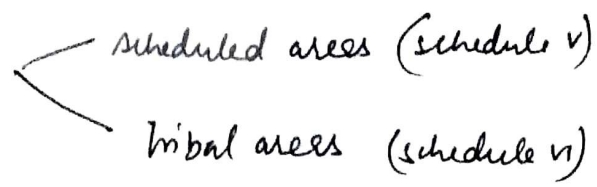 scheduled areas (schedule V)
Tribal areas (schedule VI)